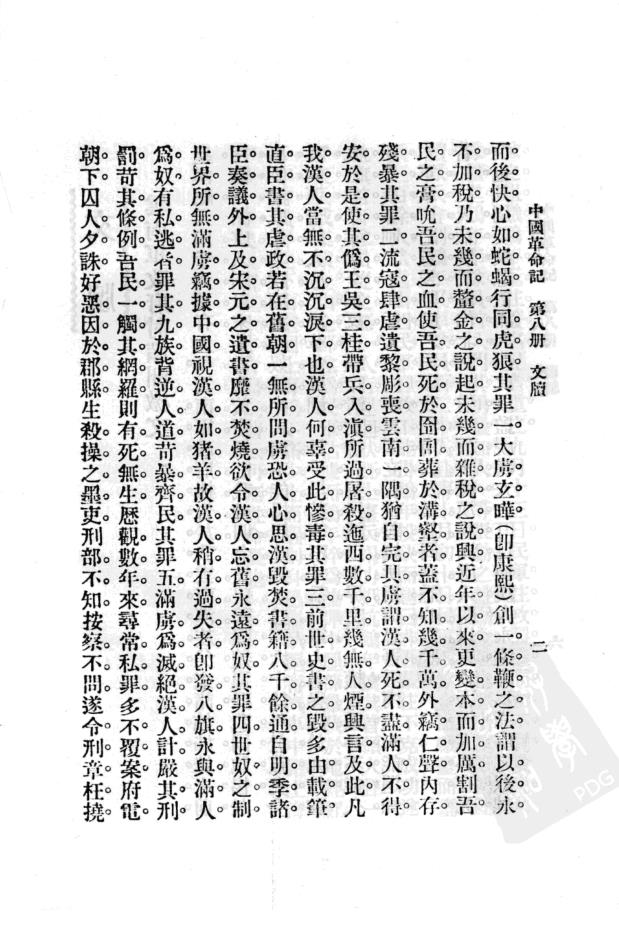 中國革命記　第八册　文牘　二
而後快心。如蛇蝎行同虎狼。其罪一。大虜玄曄(卽康熙)創一條鞭之法。謂以後永
不加稅。乃未幾而釐金之說起。未幾而雜稅之說興。近年以來。更變本而加厲。割吾
民之膏。吮吾民之血。使吾民死於囹圄。葬於溝壑者。蓋不知幾千萬。外竊仁聲。內存
殘暴。其罪二。流寇肆虐。遺黎彫喪。雲南一隅。猶自完具。虜謂漢人死不盡。滿人不得
安。於是使其僞王吳三桂帶兵入滇。所過屠殺。迤西數千里。幾無人煙。興言及此。凡
我漢人。當無不沉沉淚下也。漢人何辜。受此慘毒。其罪三。前世史書之毀。多由載筆
直臣。書其虐政。若在舊朝。一無所問。虜恐人心思漢。毀焚書籍八千餘通。自明季諸
臣奏議外。上及宋元之遺書。靡不焚燒。欲令漢人忘舊。永遠爲奴。其罪四。世奴之制。
世界所無。滿虜竊據中國。視漢人如猪羊。故漢人稍有過失者。卽發八旗。永與滿人
爲奴。有私逃者。罪其九族。背逆人道。苛暴齊民。其罪五。滿虜爲滅絕漢人計。嚴其刑
罰。苛其條例。吾民一觸其網羅。則有死無生。歷觀數年來。尋常私罪。多不覆案。府電
朝下。囚人夕誅。好惡因於郡縣。生殺操之墨吏。刑部不知。按察不問。遂令刑章枉撓。
PDG